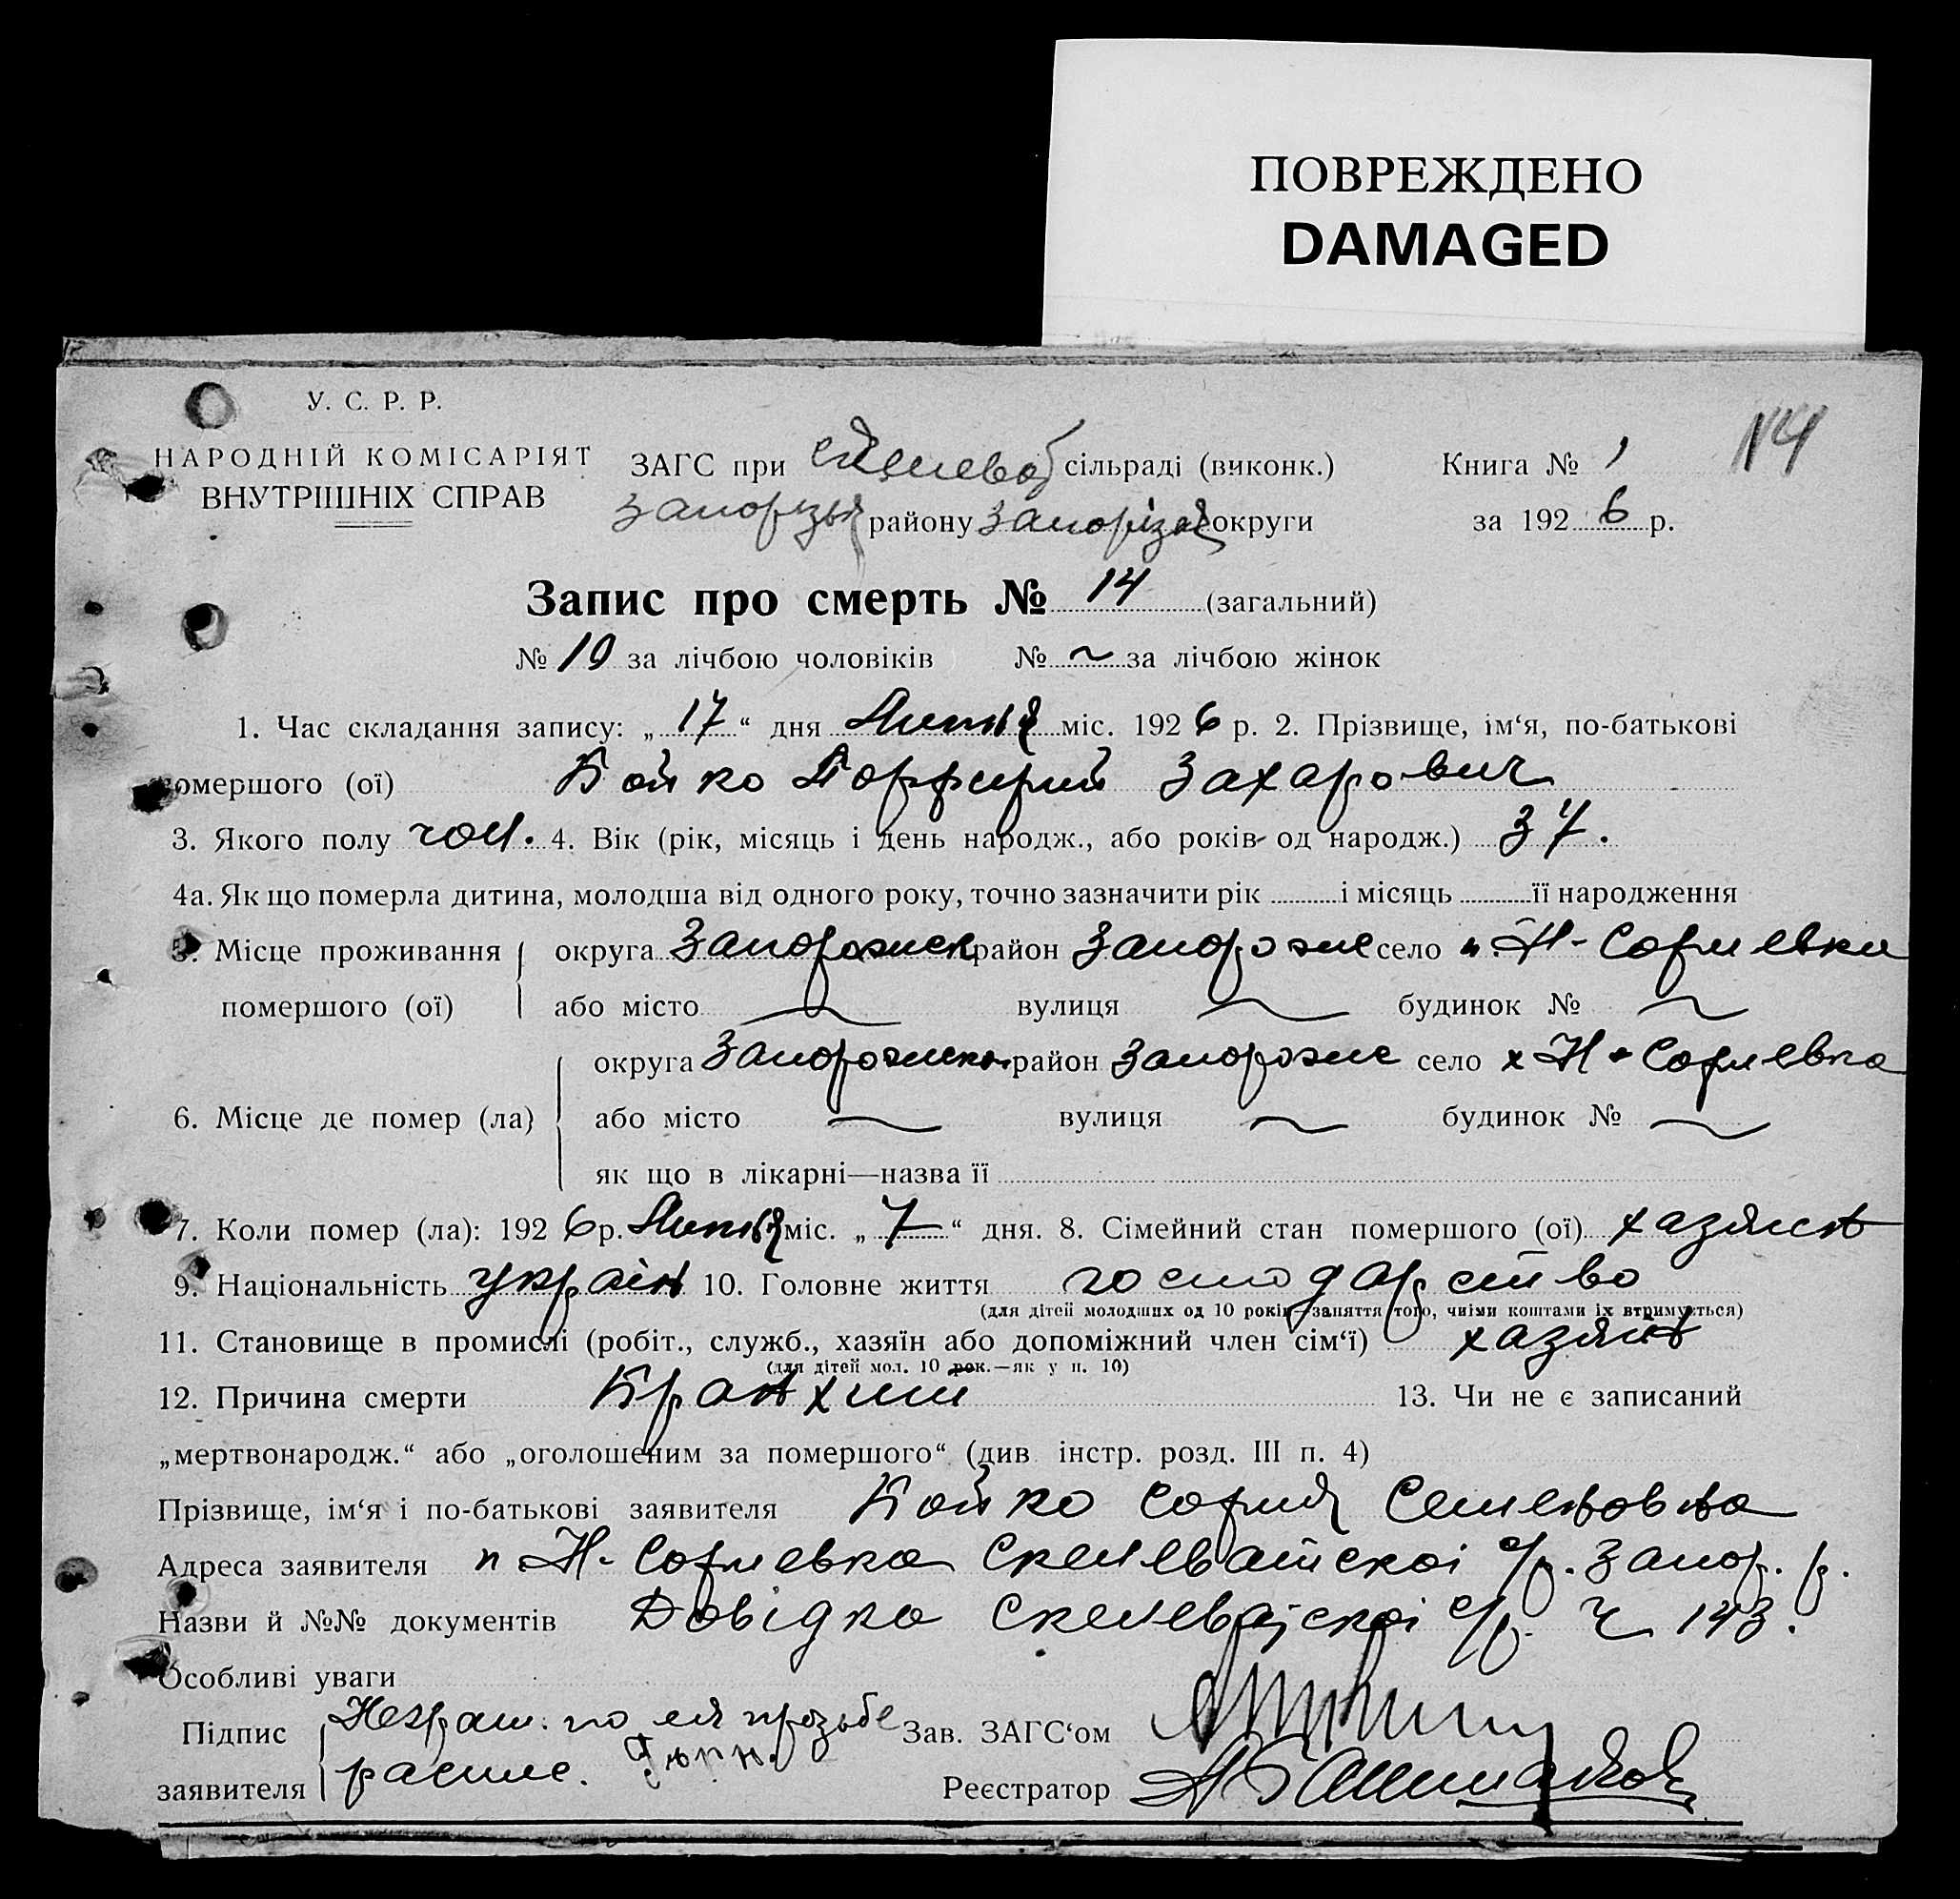 ПОВРЕЖДЕНО
DAMAGED
У. С. Р. Р.
НАРОДНІЙ КОМІСАРІЯТ
ВНУТРІШНІХ СПРАВ
ЗАГС при сільраді (виконк.)
Книга № 1
№ 14
району округи
за 1926 р.
Запис про смерть № 14 (загальний)
№ 10 за лічбою чоловіків № ~ за лічбою жінок
1. Час складання запису: „17“ дня Липня міс. 1926 р. 2. Прізвище, ім‘я, по-батькові
помершого (ої) Бойко Порфирий Захарович
3. Якого полу чол. 4. Вік (рік, місяць і день народж., або років од народж.) 37.
4а. Як що померла дитина, молодша від одного року, точно зазначити рік і місяць її народження
5. Місце проживання округа Запорожск район Запорожс село Н-Софиевки
помершого (ої) або місто вулиця будинок №
округа район Запорожс село х Н-Софиевка
6. Місце де помер (ла) або місто вулиця будинок №
як що в лікарні—назва її
7. Коли помер (ла): 1926 р. Липня міс. „7“ дня. 8. Сімейний стан помершого (ої) хазяин
9. Національність україн 10. Головне життя господарство
(для дітей молодших од 10 років—заняття того, чиїми коштами їх втримується)
11. Становище в промислі (робіт., служб., хазяїн або допоміжний член сім‘ї) хазяин
(для дітей мол. 10 рок.—як у п. 10)
12. Причина смерти Бранхит 13. Чи не є записаний
„мертвонародж.“ або „оголошеним за помершого“ (див інстр. розд. III п. 4)
Прізвище, ім‘я і по-батькові заявителя Бойко София Семеновна
Адреса заявителя п Н-Софиевка Скелеватскоі с/р. Запор. р.
Назви й №№ документів Довідка с/р. Ч 143.
Особливі уваги
Підпис Неграм. по ея прозьбе Зав. ЗАГС‘ом
заявителя распис. Реєстратор